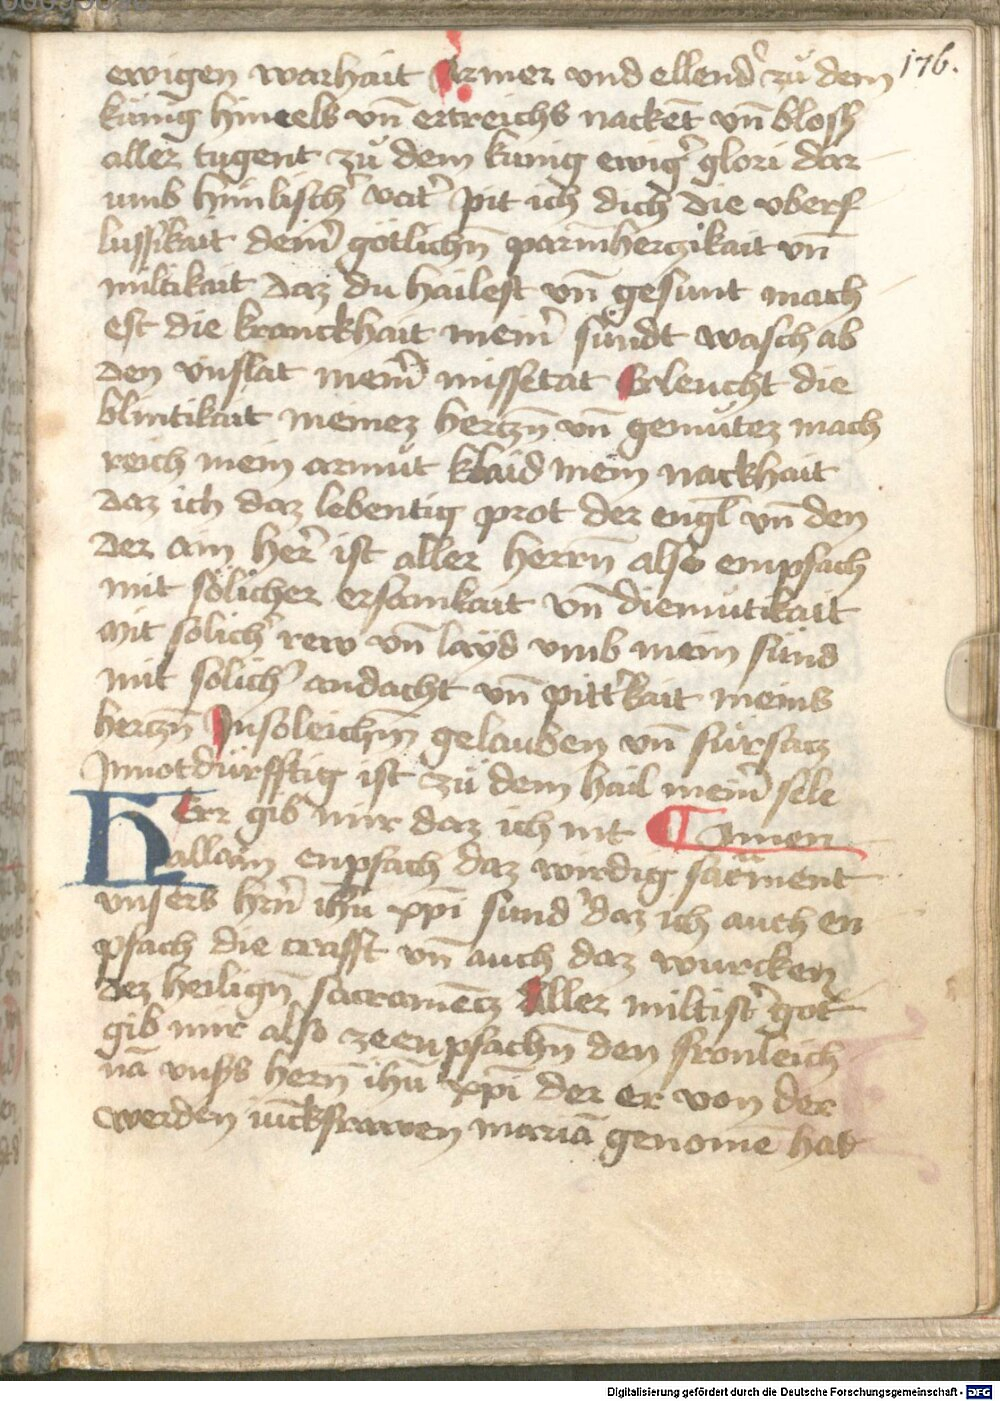 176.
ewigen warhait Armer vnd ellend' zů dem
künig himels vn̄ ertreichs nackēt vn̄ bloſſ
aller tugent zů dem kunig ewig' glori dar
umb himliſch' vat' pit ich dich die vberf
luſſikait deinr̄ götlichn̄ parmherczikait vn̄
miltikait daz du haileſt vn̄ geſunt mach
eſt die kranckhait meinr̄ ſündt waſch ab
den vnflat meinr̄ miſſetat Erleucht die
blintikait meinez herczn̄ vn̄ gemütez mach
reich mein armůt klaid mein nackhait
daz ich daz lebentig prot der engl vn̄ den
der ain her' iſt aller herrn̄ alſo empfach
mit ſölicher erſamkait vn̄ diemütikait
Mit ſolich' rew vn̄ layd vmb mein ſünd
mit ſolich' andacht vn̄ pitt'kait meins
herczn̄ In ſoleichm̄ gelauben vn̄ fürſacz
Im notdürfftig iſt zů dem hail meinr̄ ſele
HErr gib mir daz ich nit ¶ Amen
allain enpfach daz wirdig ſacr̄ment
vnſers hrn̄ ihū xp̄i ſund' daz ich auch en
pfach die crafft vn̄ auch daz wurcken
dez heilign̄ ſacramēcz Aller miltiſt' got
gib mir alſo ze enpfachn̄ den fronleich
nā vnſſs hern̄ ihū xp̄i der er von der
werden iūckfrawen mariā genomē hat
Digitalisierung gefördert durch die Deutsche Forschungsgemeinschaft - DFG